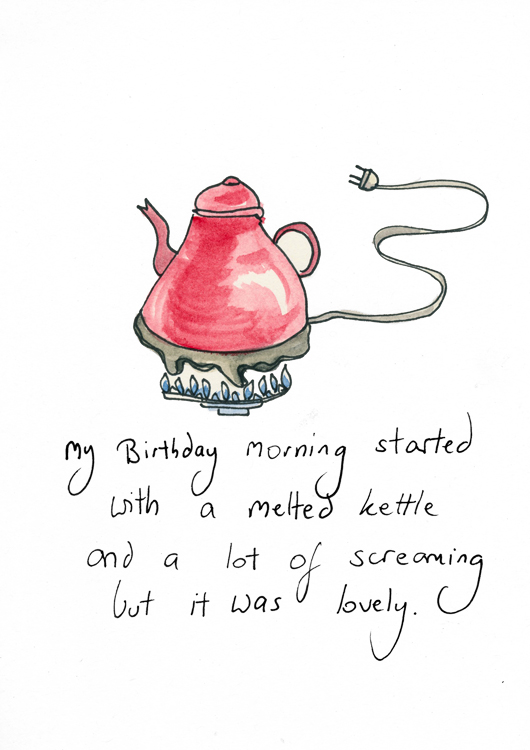 my Birthday morning started
with a melted kettle
and a lot of screaming
but it was lovely.